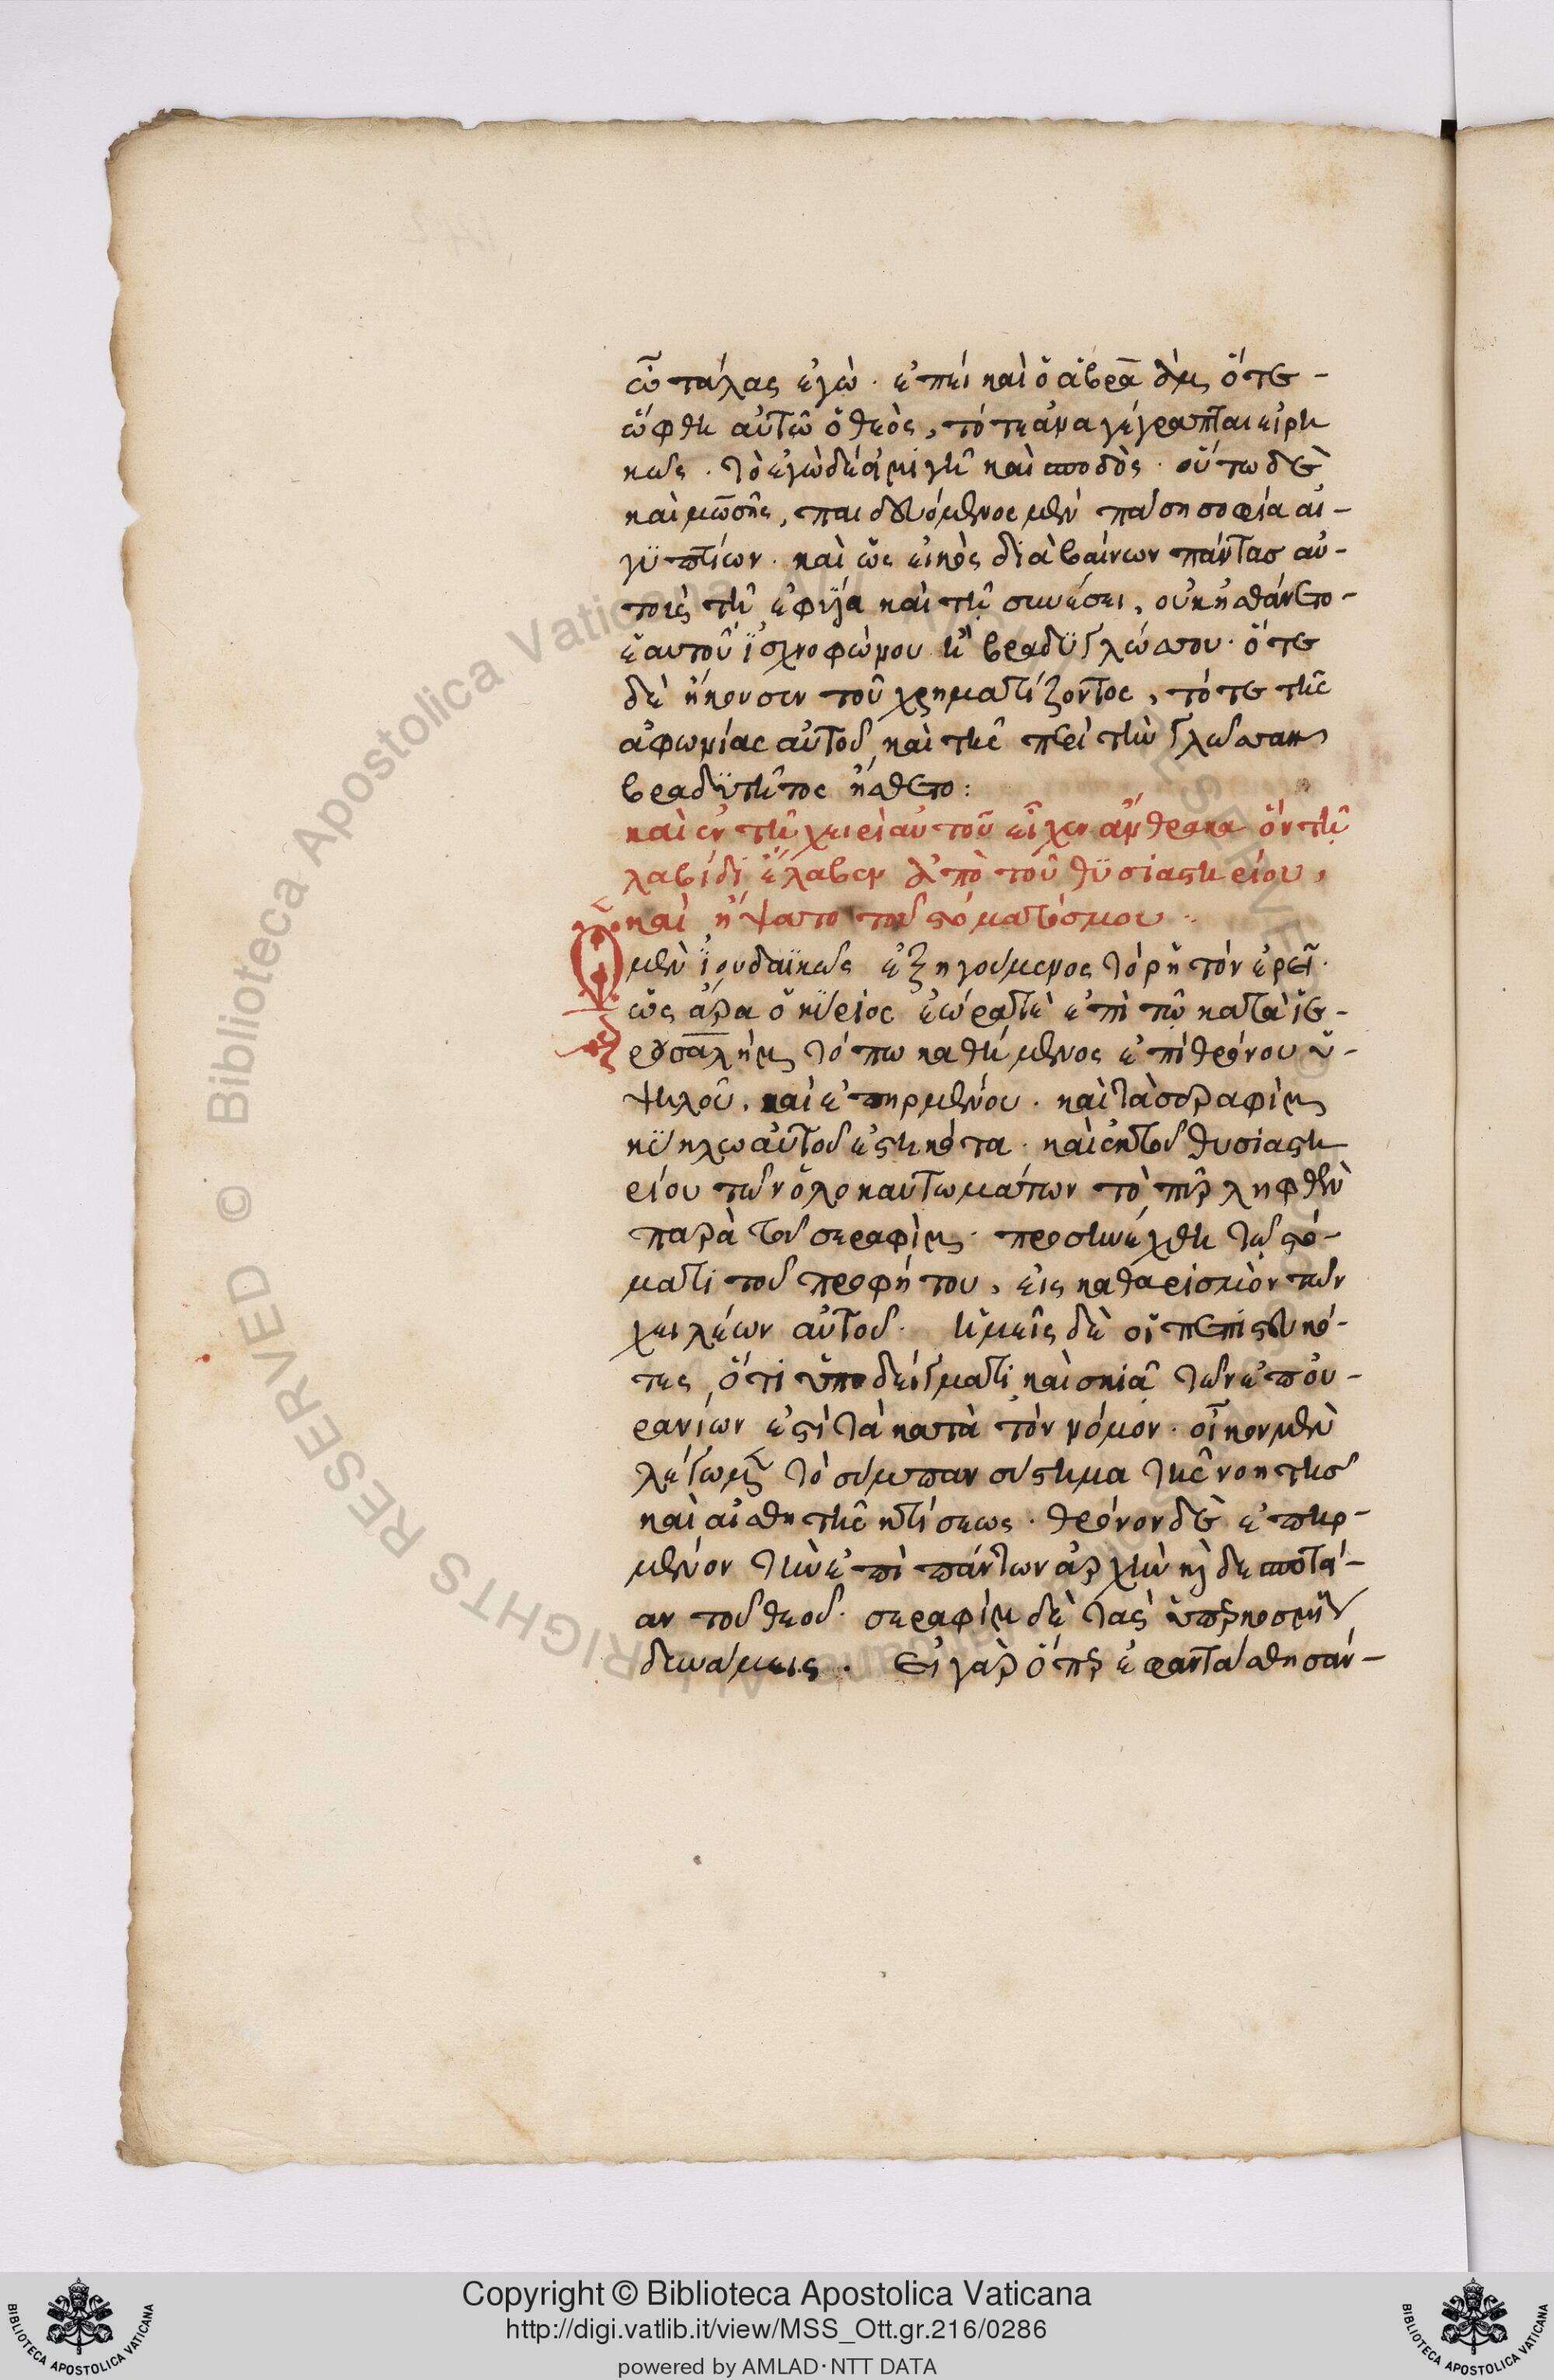 ὦ τάλας ἐγὼ. ἐπεί καὶ ὁ ἀβραὰμ, ὅτε-
ὤφθη αὐτῶ ὁ θεὸς, τότε ἅμα γέγραπται εἰρη
κως. τὸ ἐγὼ δέ εἰμι γῆ καὶ σποδὸς. οὕτω δὲ
καὶ μωσῆς, παιδευόμενος μὲν πάση σοφία αἰ-
γϋπτίων. καὶ ὡς εἰκὸς διαβαίνων πάντασ αὐ-
τοις τῆ εὐφυΐα καὶ τῆ συνέσει, οὐκ ἠσθάνετο-
ἑαυτοῦ ἰσχνοφώνου κ βραδϋγλώσσου. ὅτε
δὲ ἤκουσεν τοῦ χρηματίζοντος, τότε τῆς
ἀφωνίας αὐτοῦ, καὶ τῆς περὶ τὴν γλωσσαν
βραδϋτῆτος ἤσθετο:
καὶ ἐν τῆ χειρὶ αὐτοῦ εἶχεν ἄνθρακα ὅν τῆ
λαβίδι ἔλαβεν ἀπὸ τοῦ θϋσιαστηρίου,
καὶ ἥψατο τοῦ στόματόσ μου.
Ὁ μὲν ἰουδαϊκῶς ἐξηγούμενος τὸ ρητόν ἐρεῖ.
ὡς ἄρα ὁ κύριος ἑώραται ἐπὶ τῶ κατὰ ἱε-
ρουσαλὴμ τόπω καθήμενος ἐπὶ θρόνου ὑ-
ψηλοῦ, καὶ ἐπηρμένου. καὶ τὰ σεραφὶμ
κύκλω αὐτοῦ ἑστηκότα. καὶ ἐκ τοῦ θυσιαστη
ρίου τῶν ὁλοκαυτωμάτων τὸ πῦρ ληφθὲν
παρὰ τοῦ σεραφὶμ. προσηνέχθη τῶ στό-
ματι τοῦ προφήτου, εἰς καθαρισμὸν τῶν
χειλέων αὐτοῦ. ἡμεῖς δὲ οἱ πεπιστευκό-
τες, ὅτι ὑποδείγματι καὶ σκιᾶ τῶν ἐπου-
ρανίων ἐστὶ τὰ κατὰ τὸν νόμον. οἶκον μὲν
λέγωμεν τὸ σύμπαν σύστημα τῆς νοητῆσ
καὶ αἰσθητῆς κτίσεως. θρόνον δὲ ἐπηρ-
μένον τὴν ἐπὶ πάντων ἀρχὴν κ δεσποτεί-
αν τοῦ θεοῦ. σεραφὶμ δὲ τὰς ὑπερκοσμίους
δυνάμεις. Εἰ γὰρ ὅπερ ἐφαντάσθησαν-
Copyright © Biblioteca Apostolica Vaticana
http://digi.vatlib.it/view/MSS_Ott.gr.216/0286
powered by AMLAD·NTT DATA